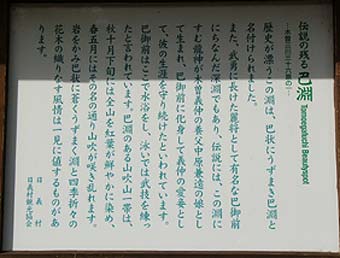 伝説の残る 巴淵 Tomoegafuchi Beautyspot
…木曽三川三十六景の一…
歴史が漂うこの淵は、巴状にうずまき巴淵と
名付けられました。
また、武勇に長けた麗将として有名な巴御前
にちなんだ深淵でもあり、伝説には、この淵に
すむ龍神が木曽義仲の養父中原兼遠の娘とし
て生まれ、巴御前に化身して義仲の愛妾とし
て、彼の生涯を守り続けたといわれています。
巴御前はここで水浴をし、泳いでは武技を練っ
たと言われています。巴淵のある山吹山一帯は、
秋十月下旬には全山を紅葉が鮮やかに染め、
春五月にはその名の通り山吹が咲き乱れます。
岩をかみ巴状に蒼くうずまく淵と四季折々の
花木の織りなす風情は一見に値するものがあ
ります。
日義村
日義村観光協会